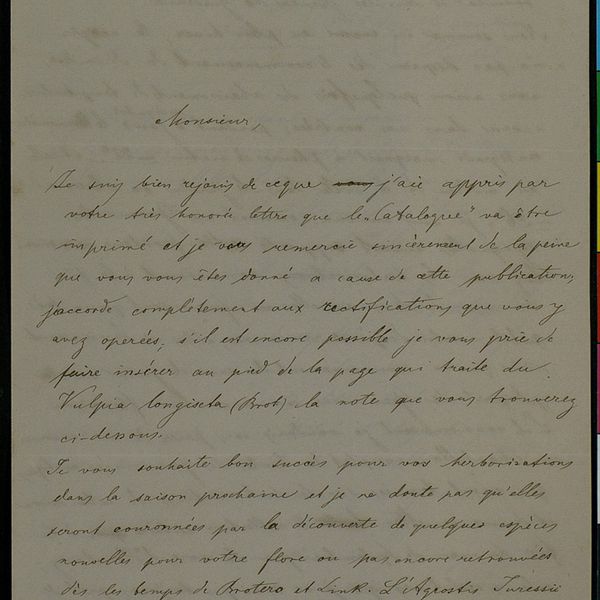 Monsieur,
Je suis bien rejouis de ceque vous j'aie appris par
votre très honorée lettre que le "Catalogue" va être
imprimé et je vous remercie sincèrement de la peine
que vous vous êtes donné a cause de cette publication,
j'accorde complètement aux rectifications que vous y
avez operées; s'il est encore possible je vous prie de
faire insérer au pied de la page qui traite du
Vulpia longiseta (Brot) la note que vous trouverez
ci-dessous.
Je vous souhaite bon succès pour vos herborizations
dans la saison prochaine et je ne doute pas qu'elles
seront couronnées par la découverte de quelques espèces
nouvelles pour votre flore ou pas encore retrouvées
dès les temps de Brotero et Link. L'Agrostis